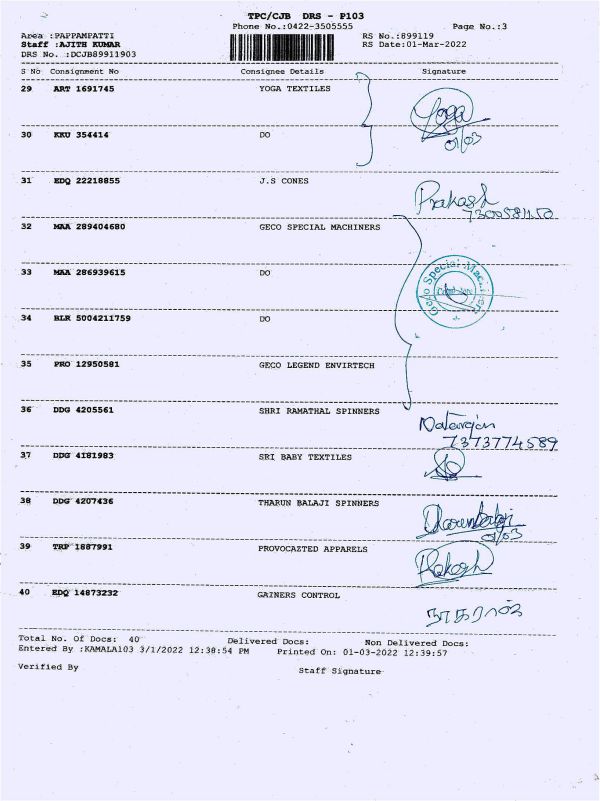 TPC/CJB DRS - P103
Phone No.:0422-3505555 Page No.:3
Area :PAPPAMPATTI RS No.:899119
Staff :AJITH KUMAR RS Date:01-Mar-2022
DRS No. :DCJB89911903
S No Consignment No Consignee Details Signature
29 ART 1691745 YOGA TEXTILES
Yoga
01/03
30 KKU 354414 DO
31 EDQ 22218855 J.S CONES
Prakash
32 MAA 289404680 GECO SPECIAL MACHINERS
33 MAA 286939615 DO
Geco Special Machiners
34 BLR 5004211759 DO
35 PRO 12950581 GECO LEGEND ENVIRTECH
36 DDG 4205561 SHRI RAMATHAL SPINNERS
Natarajan
7373774589
37 DDG 4181983 SRI BABY TEXTILES
38 DDG 4207436 THARUN BALAJI SPINNERS
01/03
39 TRP 1887991 PROVOCAZTED APPARELS
40 EDQ 14873232 GAINERS CONTROL
Total No. Of Docs: 40 Delivered Docs: Non Delivered Docs:
Entered By :KAMALA103 3/1/2022 12:38:54 PM Printed On: 01-03-2022 12:39:57
Verified By Staff Signature